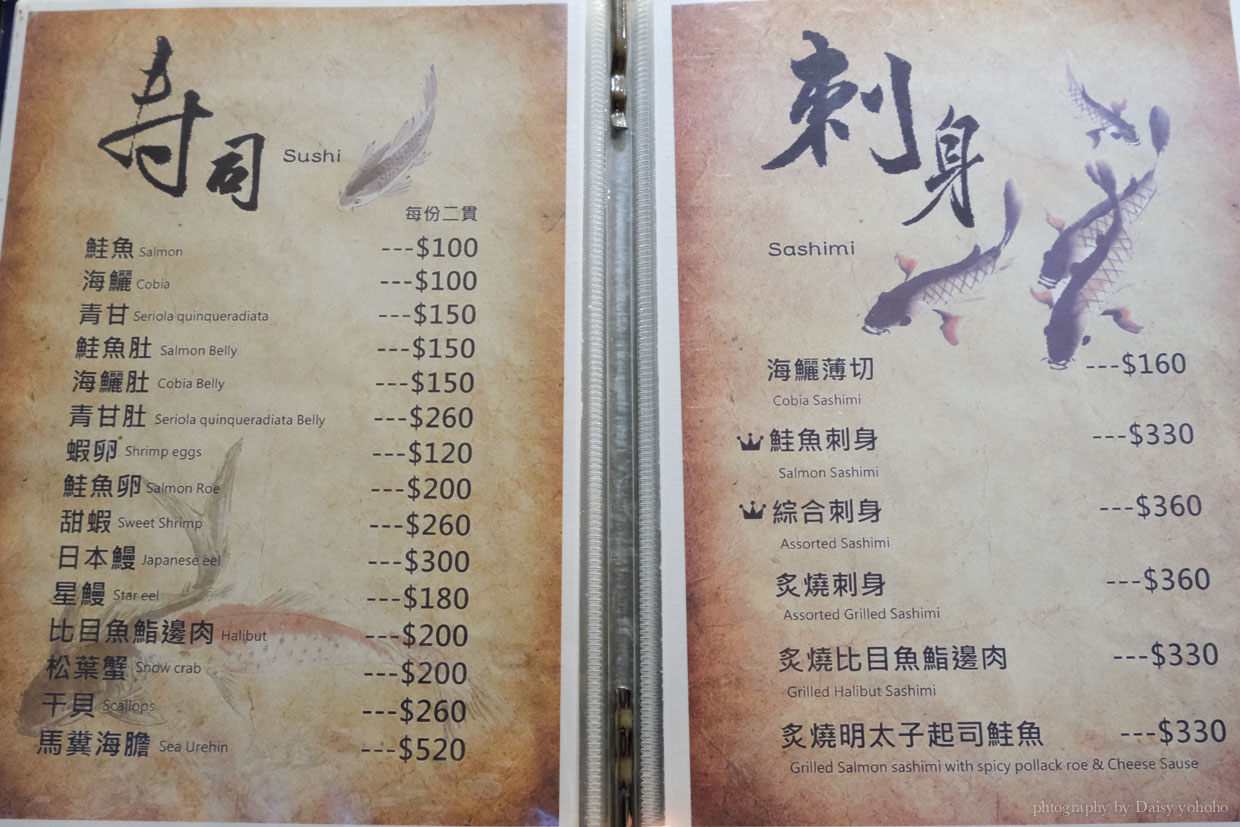 寿司 Sushi
每份二貫
鮭魚 Salmon ---$100
海鱺 Cobia ---$100
青甘 Seriola quinqueradiata ---$150
鮭魚肚 Salmon Belly ---$150
海鱺肚 Cobia Belly ---$150
青甘肚 Seriola quinqueradiata Belly ---$260
蝦卵 Shrimp eggs ---$120
鮭魚卵 Salmon Roe ---$200
甜蝦 Sweet Shrimp ---$260
日本鰻 Japanese eel ---$300
星鰻 Star eel ---$180
比目魚鮨邊肉 Halibut ---$200
松葉蟹 Snow crab ---$200
干貝 Scallops ---$260
馬糞海膽 Sea Urehin ---$520
刺身
Sashimi
海鱺薄切 ---$160
Cobia Sashimi
鮭魚刺身 ---$330
Salmon Sashimi
綜合刺身 ---$360
Assorted Sashimi
炙燒刺身 ---$360
Assorted Grilled Sashimi
炙燒比目魚鮨邊肉 ---$330
Grilled Halibut Sashimi
炙燒明太子起司鮭魚 ---$330
Grilled Salmon sashimi with spicy pollack roe & Cheese Sause
phtography by Daisy yohoho